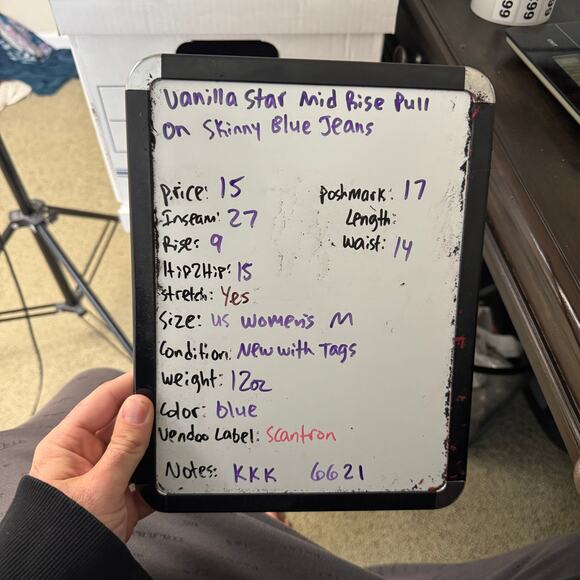 Vanilla Star Mid Rise Pull
on Skinny Blue Jeans
Price: 15
Poshmark: 17
Inseam: 27
Length:
Rise: 9
Waist: 14
Hip2Hip: 15
Stretch: Yes
Size: US Women's M
Condition: New with Tags
Weight: 12oz
Color: blue
Vendoo Label: Scantron
Notes: KKK 6621
6699